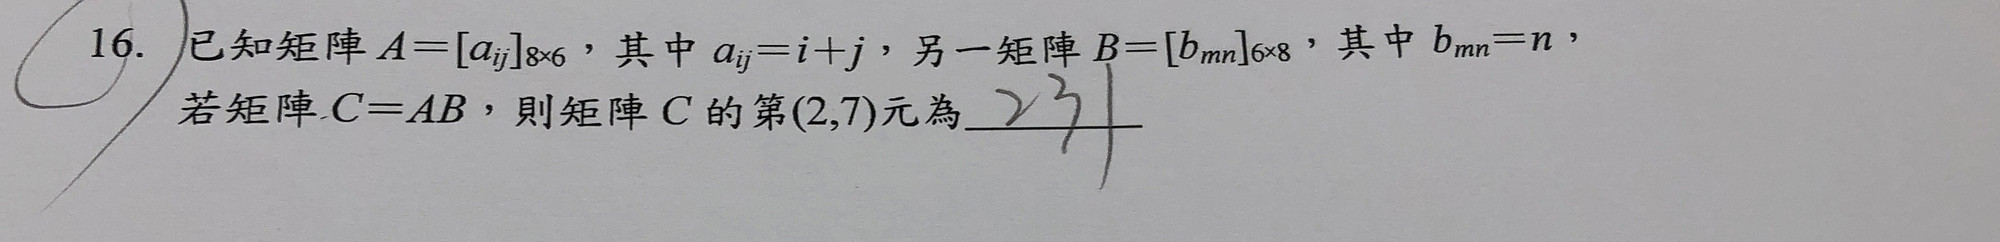 16. 已知矩陣 A=[aij]8×6，其中 aij=i+j，另一矩陣 B=[bmn]6×8，其中 bmn=n，
若矩陣 C=AB，則矩陣 C 的第(2,7)元為 231